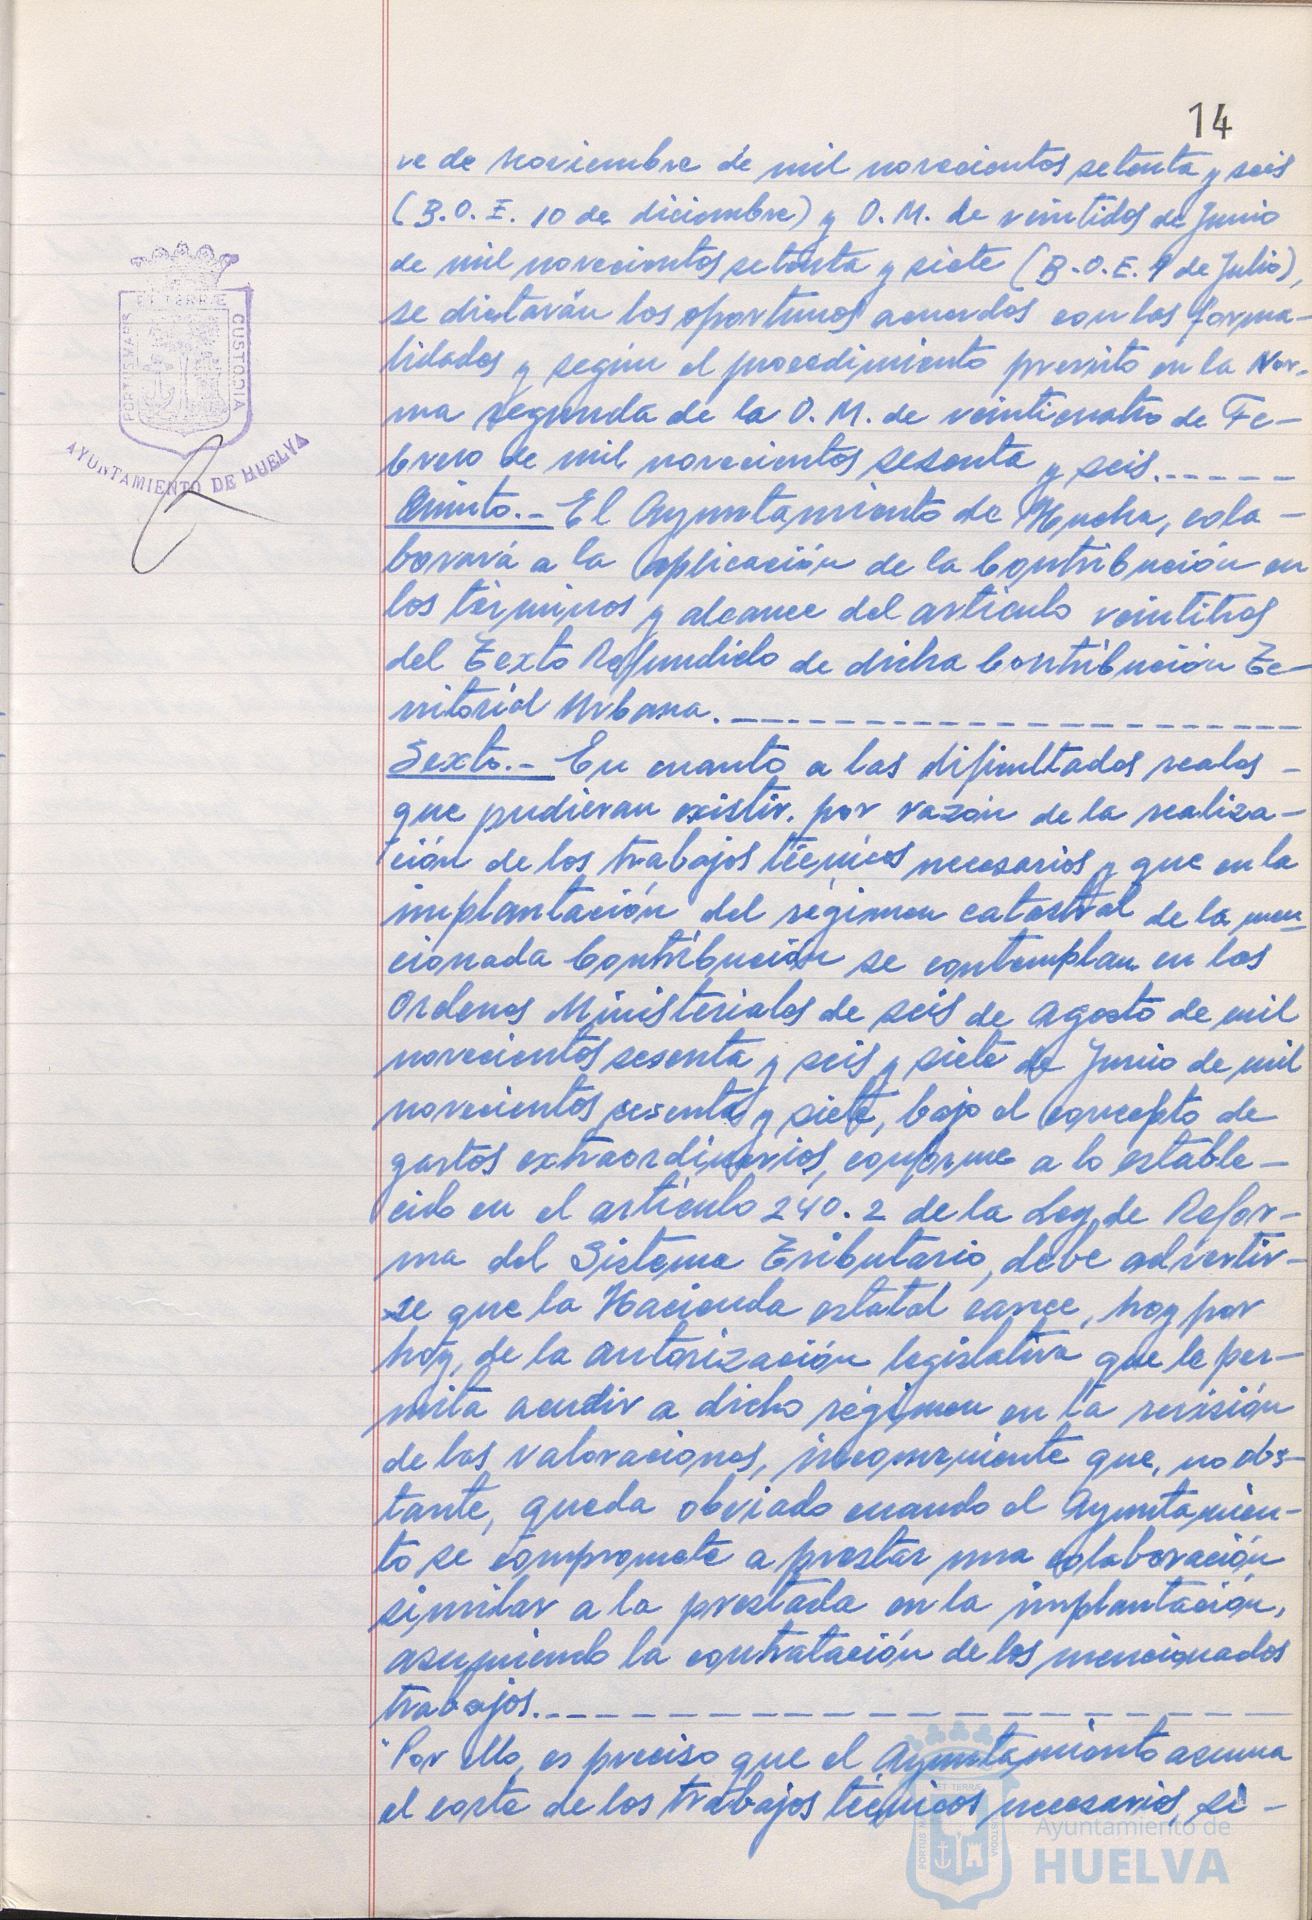 14
ve de Noviembre de mil novecientos setenta y seis
(B.O.E. 10 de diciembre) y O.M. de veintidos de Junio
de mil novecientos setenta y siete (B.O.E. 9 de Julio),
se dictarán los oportunos acuerdos con las forma-
lidades y según el procedimiento previsto en la Nor-
ma segunda de la O.M. de veinticuatro de Fe-
brero de mil novecientos sesenta y seis.-----
Quinto.- El Ayuntamiento de Huelva, cola-
borará a la aplicación de la Contribución en
los términos y alcance del artículo veintitres
del Texto Refundido de dicha Contribución Te-
rritorial Urbana.------------
Sexto.- En cuanto a las dificultades reales -
que pudieran existir, por razón de la realiza-
ción de los trabajos técnicos necesarios y que en la
implantación del régimen catastral de la men
cionada Contribución se contemplan en las
Ordenes Ministeriales de seis de Agosto de mil
novecientos sesenta y seis y siete de Junio de mil
novecientos sesenta y siete, bajo el concepto de
gastos extraordinarios, conforme a lo estable-
cido en el artículo 240.2 de la Ley de Refor-
ma del Sistema Tributario, debe advertir-
se que la Hacienda estatal carece, hoy por
hoy, de la autorización legislativa que le per-
mita acudir a dicho régimen en la revisión
de las valoraciones, inconveniente que, no obs-
tante, queda obviado cuando el Ayuntamien-
to se compromete a prestar una colaboración
similar a la prestada en la implantación,
asumiendo la contratación de los mencionados
trabajos.------------
Por ello, es preciso que el Ayuntamiento asuma
el coste de los trabajos técnicos necesarios, si -
PORTUS MARIS
ET TERRÆ
CUSTODIA
AYUNTAMIENTO DE HUELVA
PORTUS MARIS
ET TERRÆ
CUSTODIA
Ayuntamiento de
HUELVA